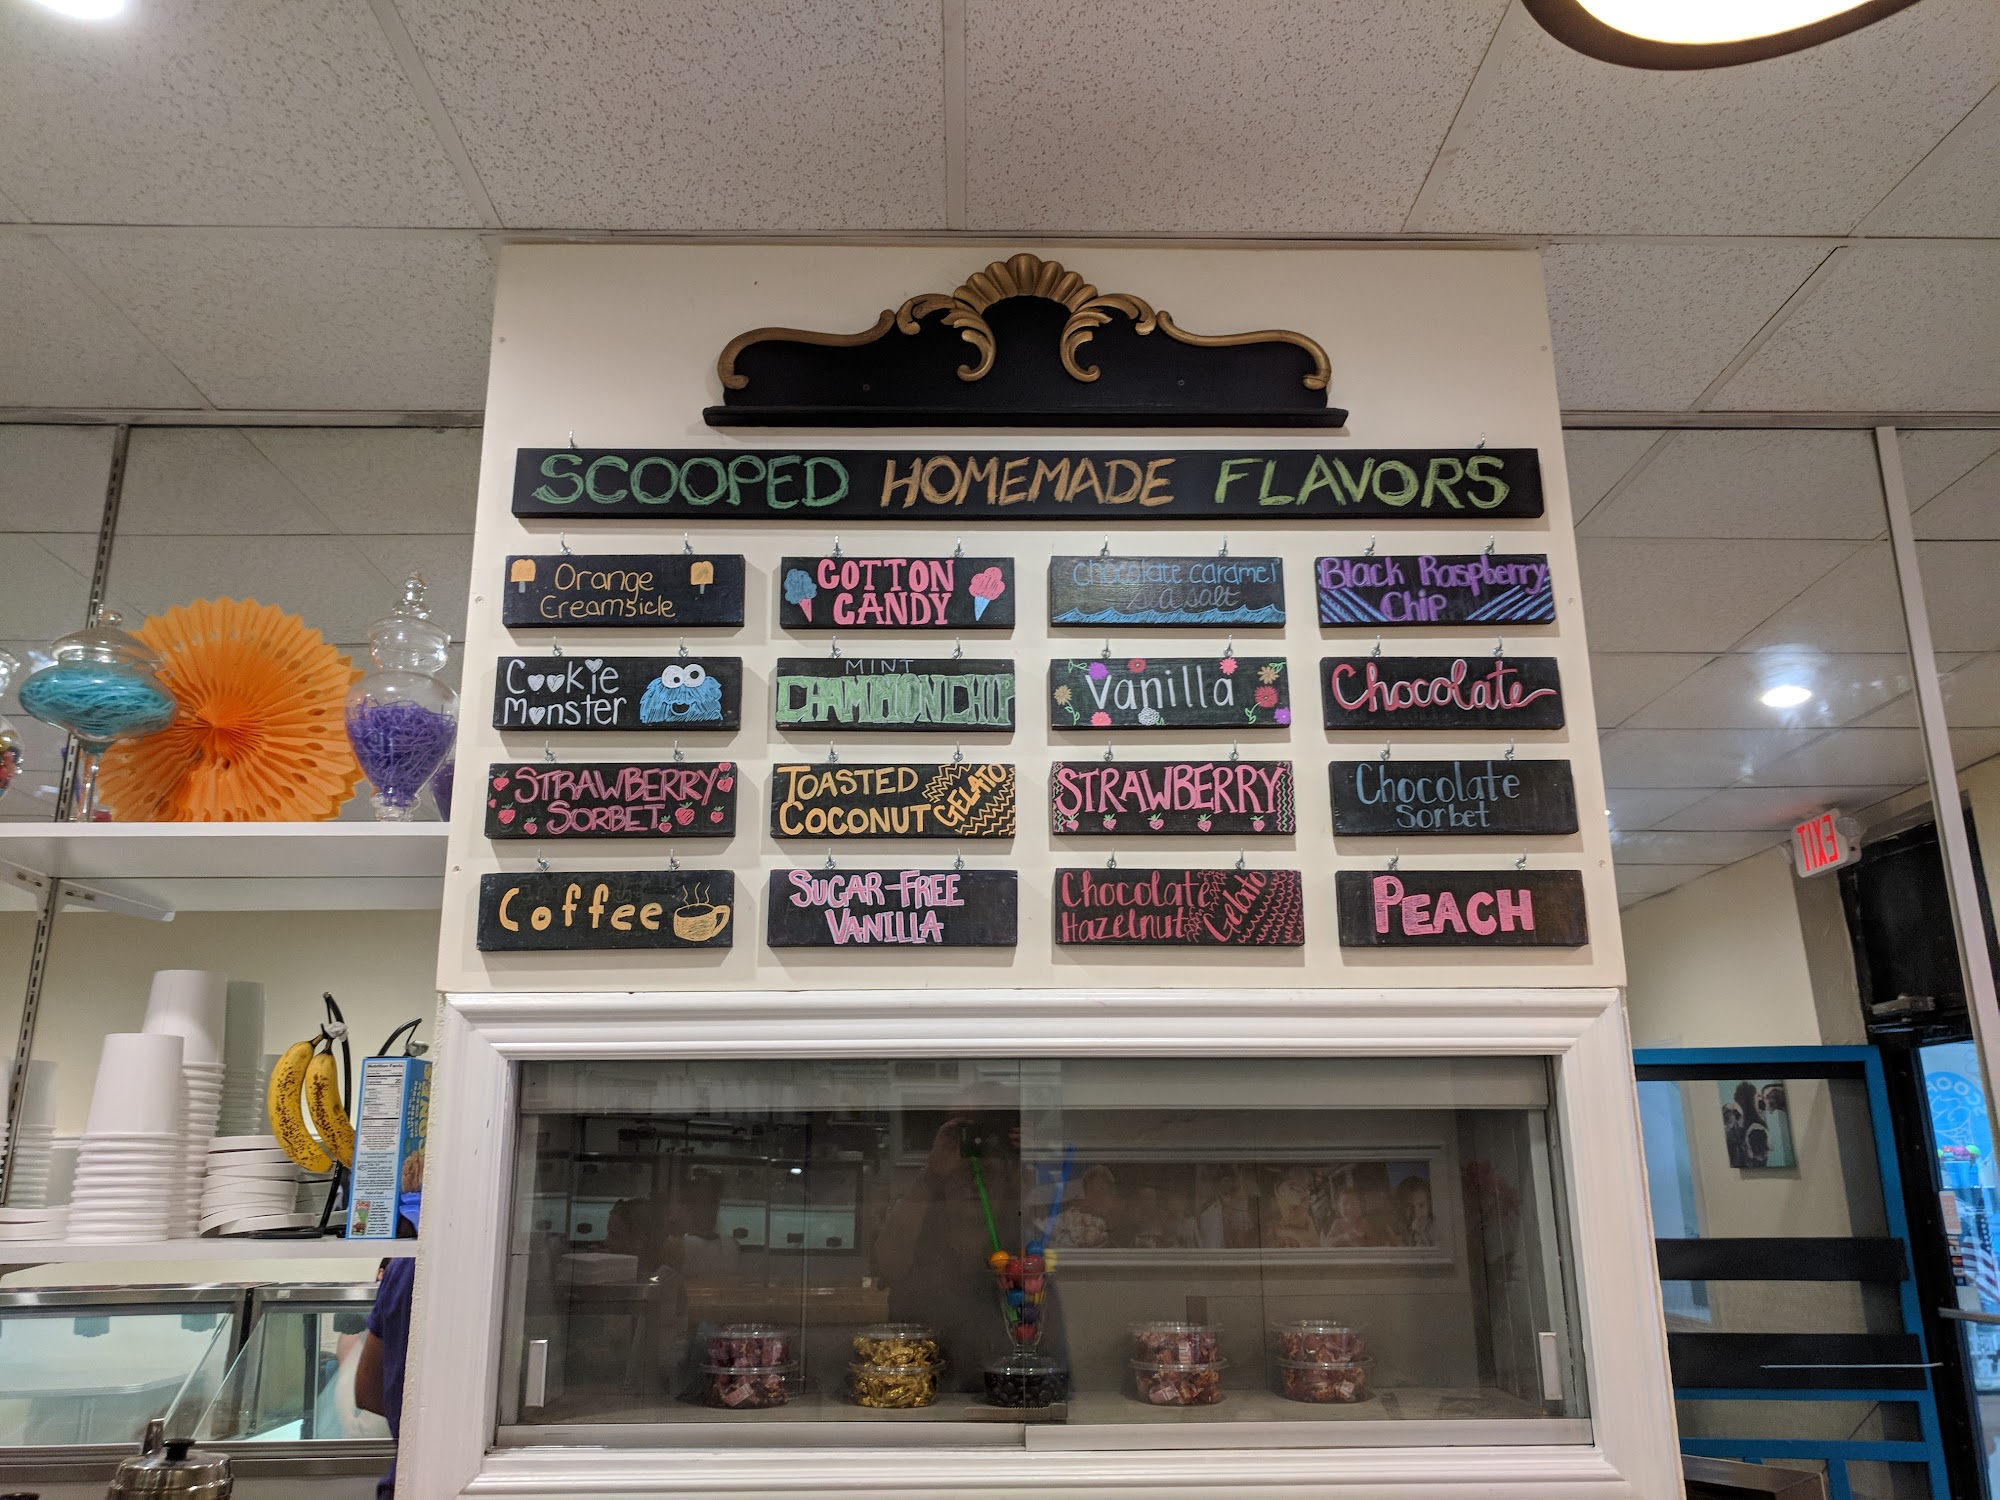 SCOOPED HOMEMADE FLAVORS
Orange
Creamsicle
COTTON
CANDY
chocolate caramel
sea salt
Black Raspberry
Chip
Cookie
Monster
MINT
CHAMMONCHIP
Vanilla
Chocolate
STRAWBERRY
SORBET
TOASTED
COCONUT
GELATO
STRAWBERRY
Chocolate
Sorbet
Coffee
SUGAR-FREE
VANILLA
Chocolate
Hazelnut
Gelato
PEACH
EXIT
Nutrition Facts